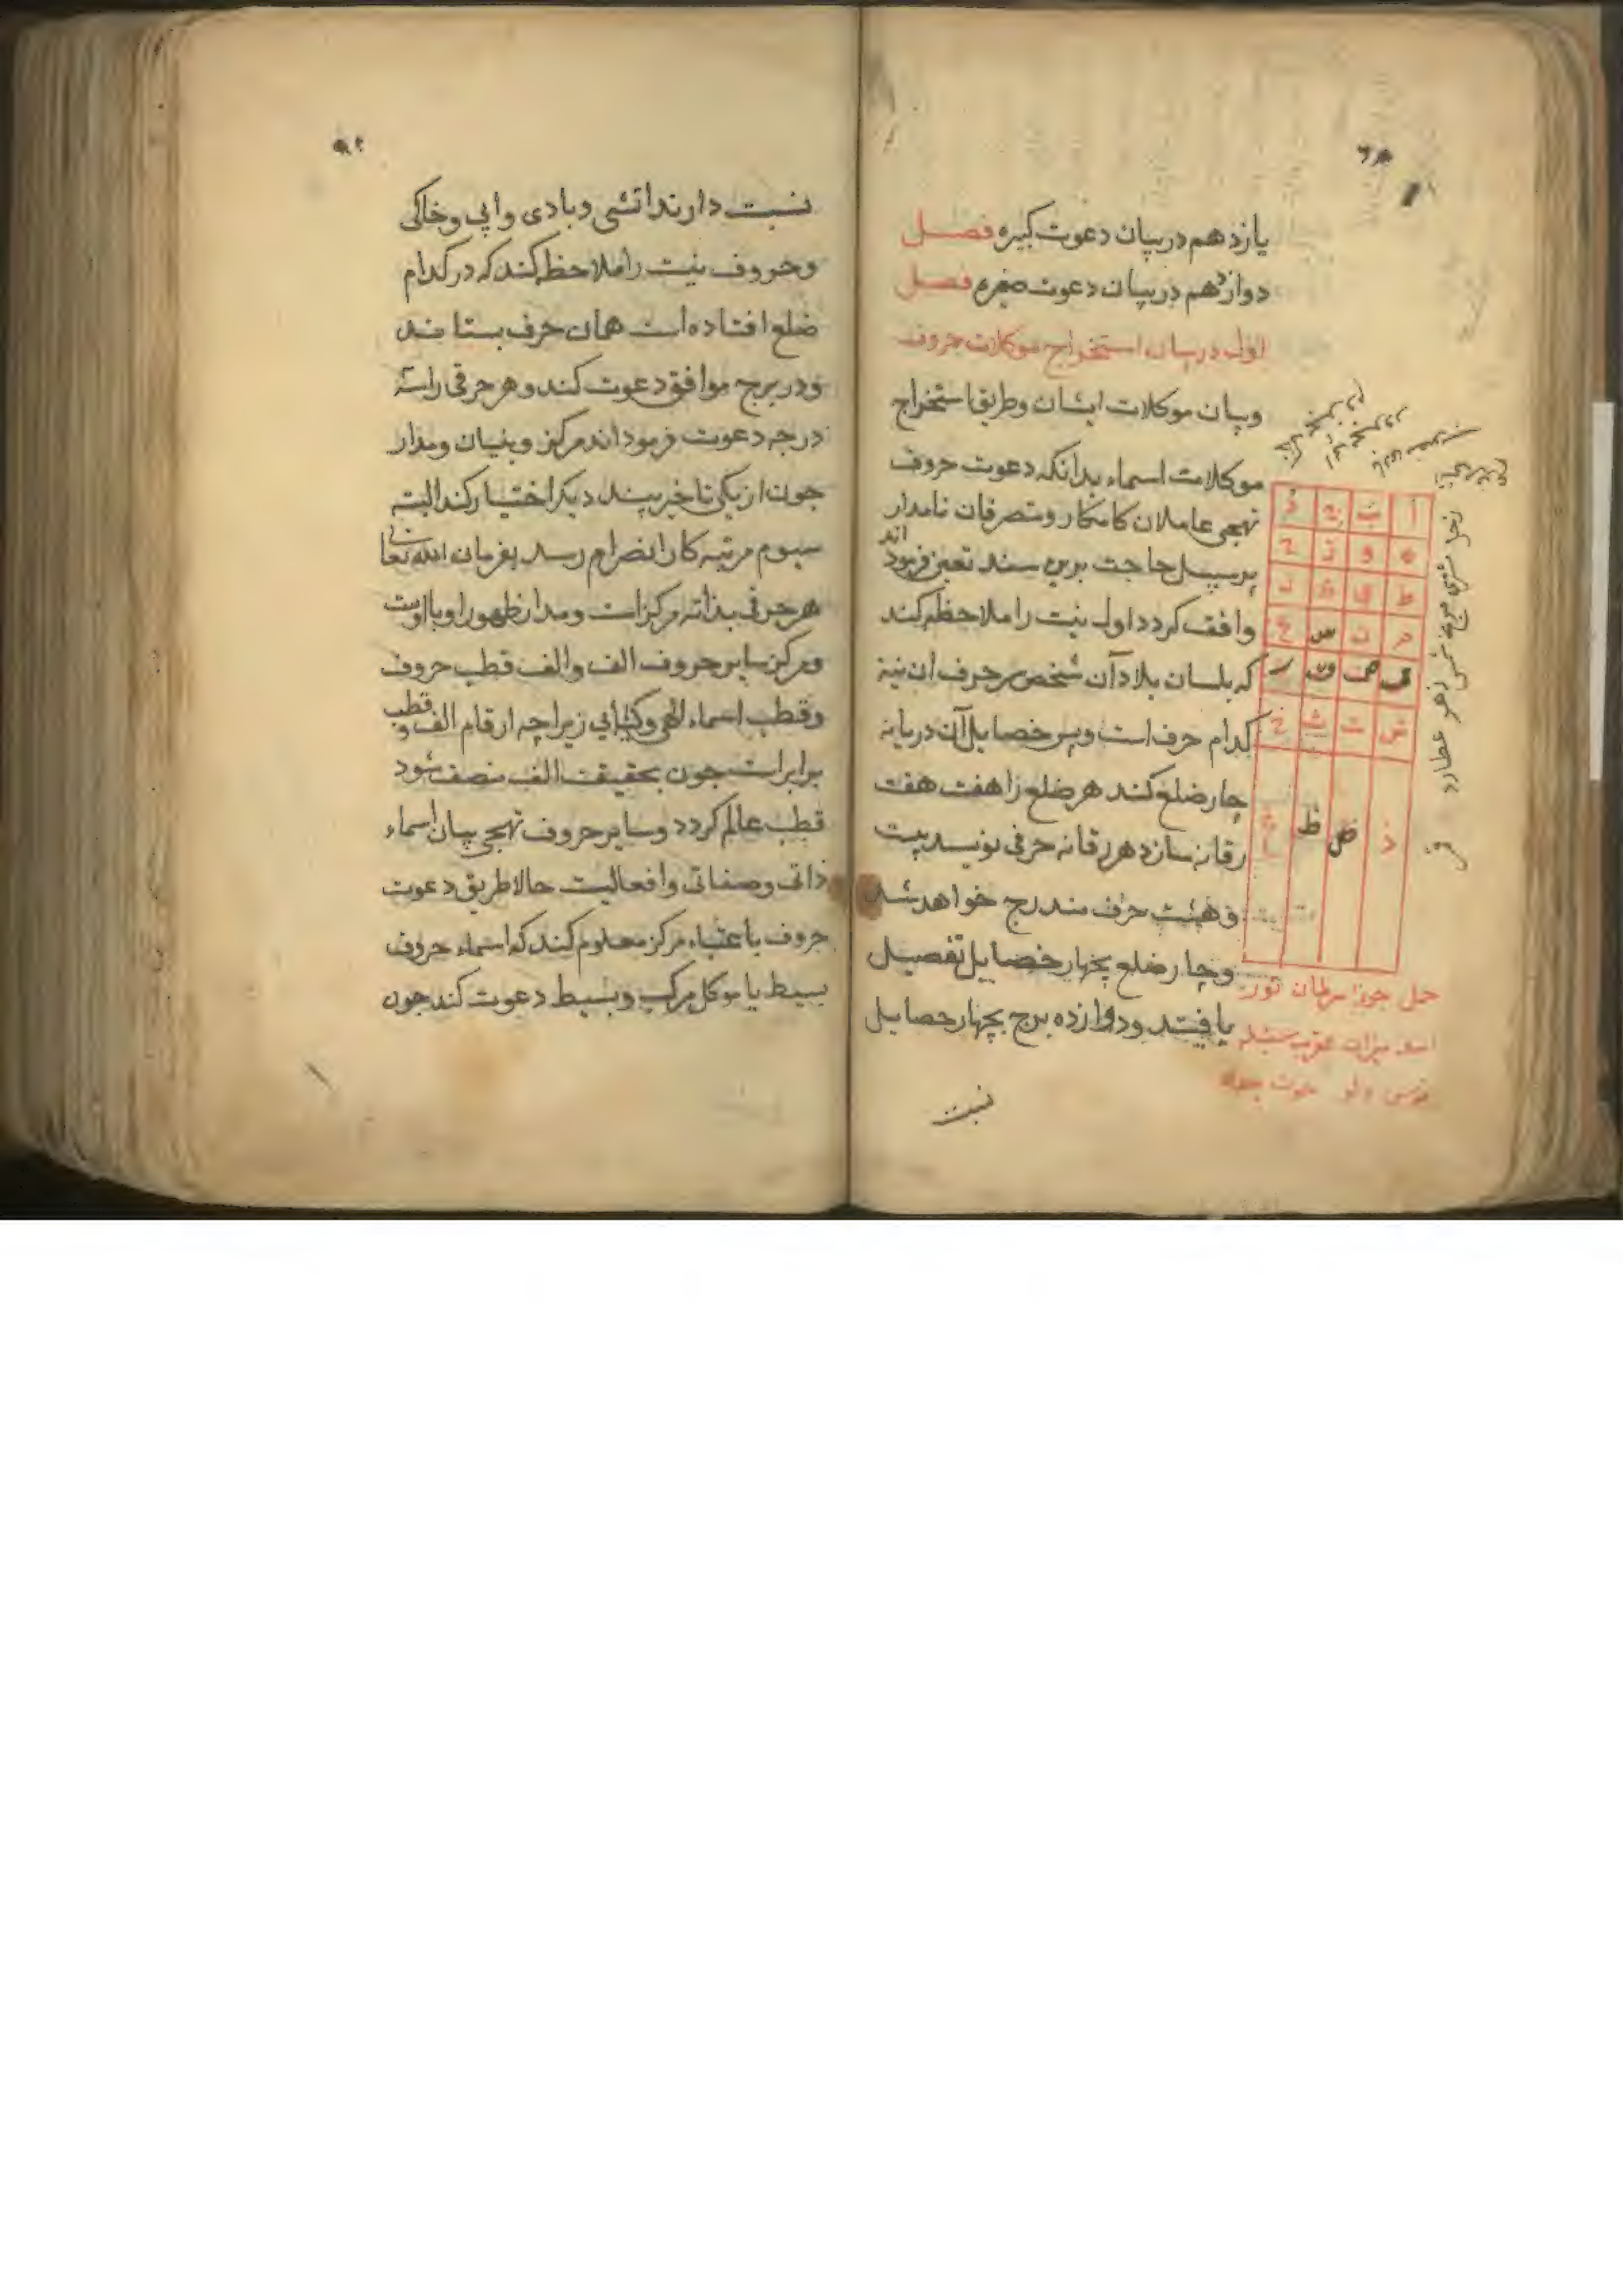 یازدهم در بیان دعوت کبیره فصل
دوازدهم در بیان دعوت صغیره فصل
اول در بیان استخراج موکلات حروف
وبیان موکلات ایشان وطریق استخراج
موکلات اسماء بدانکه دعوت حروف
تهجی عاملان کامکار ومتصرفان نامدار
برسبیل حاجت برین سند تعین فرموده اند
واقف کردد اول نیت را ملاحظه کند
که بلسان بلاد آن شخص سر حرف ان نیة
کدام حرف است وپس خصایل آن دریابه
چار ضلع کند هر ضلع را هفت هفت
رقانه سازد هر رقانه حرفی نویسد بیست
وهشت حرف مندرج خواهد شد
وچار ضلع بچهار خصایل تفصیل
یافتند ودوازده برج بچهار خصایل
نسبت
ا ب ج د
ه و ز ح
ط ی ک ل
م ن س ع
ف ص ق ر
ش ت ث خ
ذ ض ظ غ
زحل مشتری مریخ شمس زهره عطارد قمر
حمل جوزا سرطان ثور
اسد میزان عقرب سنبله
قوس دلو حوت جدی
نسبت دارند اتشی وبادی وابی وخاکی
وحروف نیت را ملاحظه کند که در کدام
ضلع افتاده است همان حرف بستانند
ودر برج موافق دعوت کند وهر حرفی را سه
درجه دعوت فرموده اند مرکز وبنیان ومدار
جون از یکی تاخیر بیند دیکر اختیار کند البته
سیوم مرتبه کار انصرام رسد بفرمان الله تعالی
هر حرفی بذاته مرکز است ومدار ظهور او با اوست
ومرکز سایر حروف الف والف قطب حروف
وقطب اسماء الهی وکیانی زیراچه ارقام الف وقطب
برابر است جون بحقیقت الف متصف شود
قطب عالم کردد وسایر حروف تهجی بیان اسماء
ذاتی وصفاتی وافعالیت حالا طریق دعوت
حروف باعتبار مرکز معلوم کند که اسماء حروف
بسیط یا موکل مرکب وبسیط دعوت کند جون